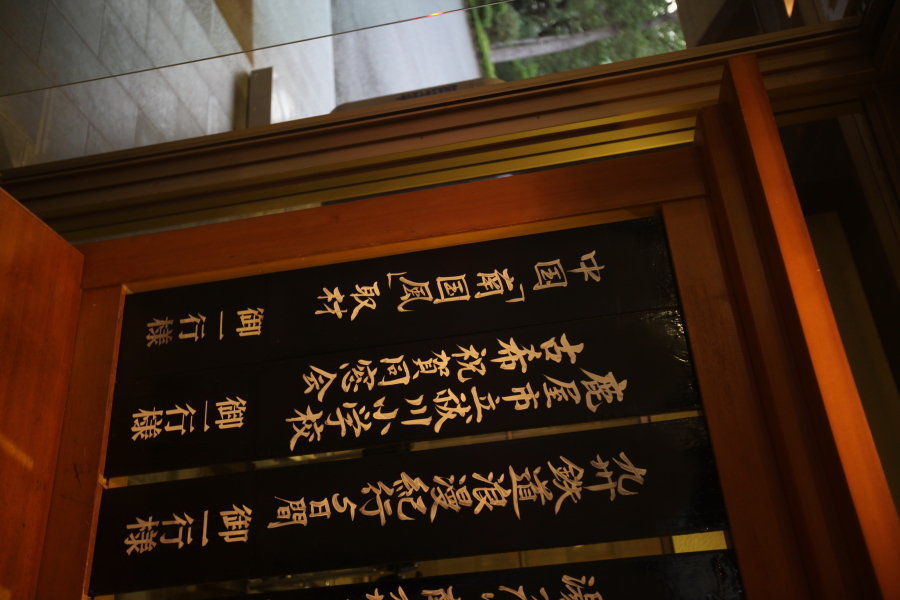 九州鉄道浪漫紀行5日間 御一行様
鹿屋市立祓川小学校
古希祝賀同窓会 御一行様
中国「南国風」取材 御一行様